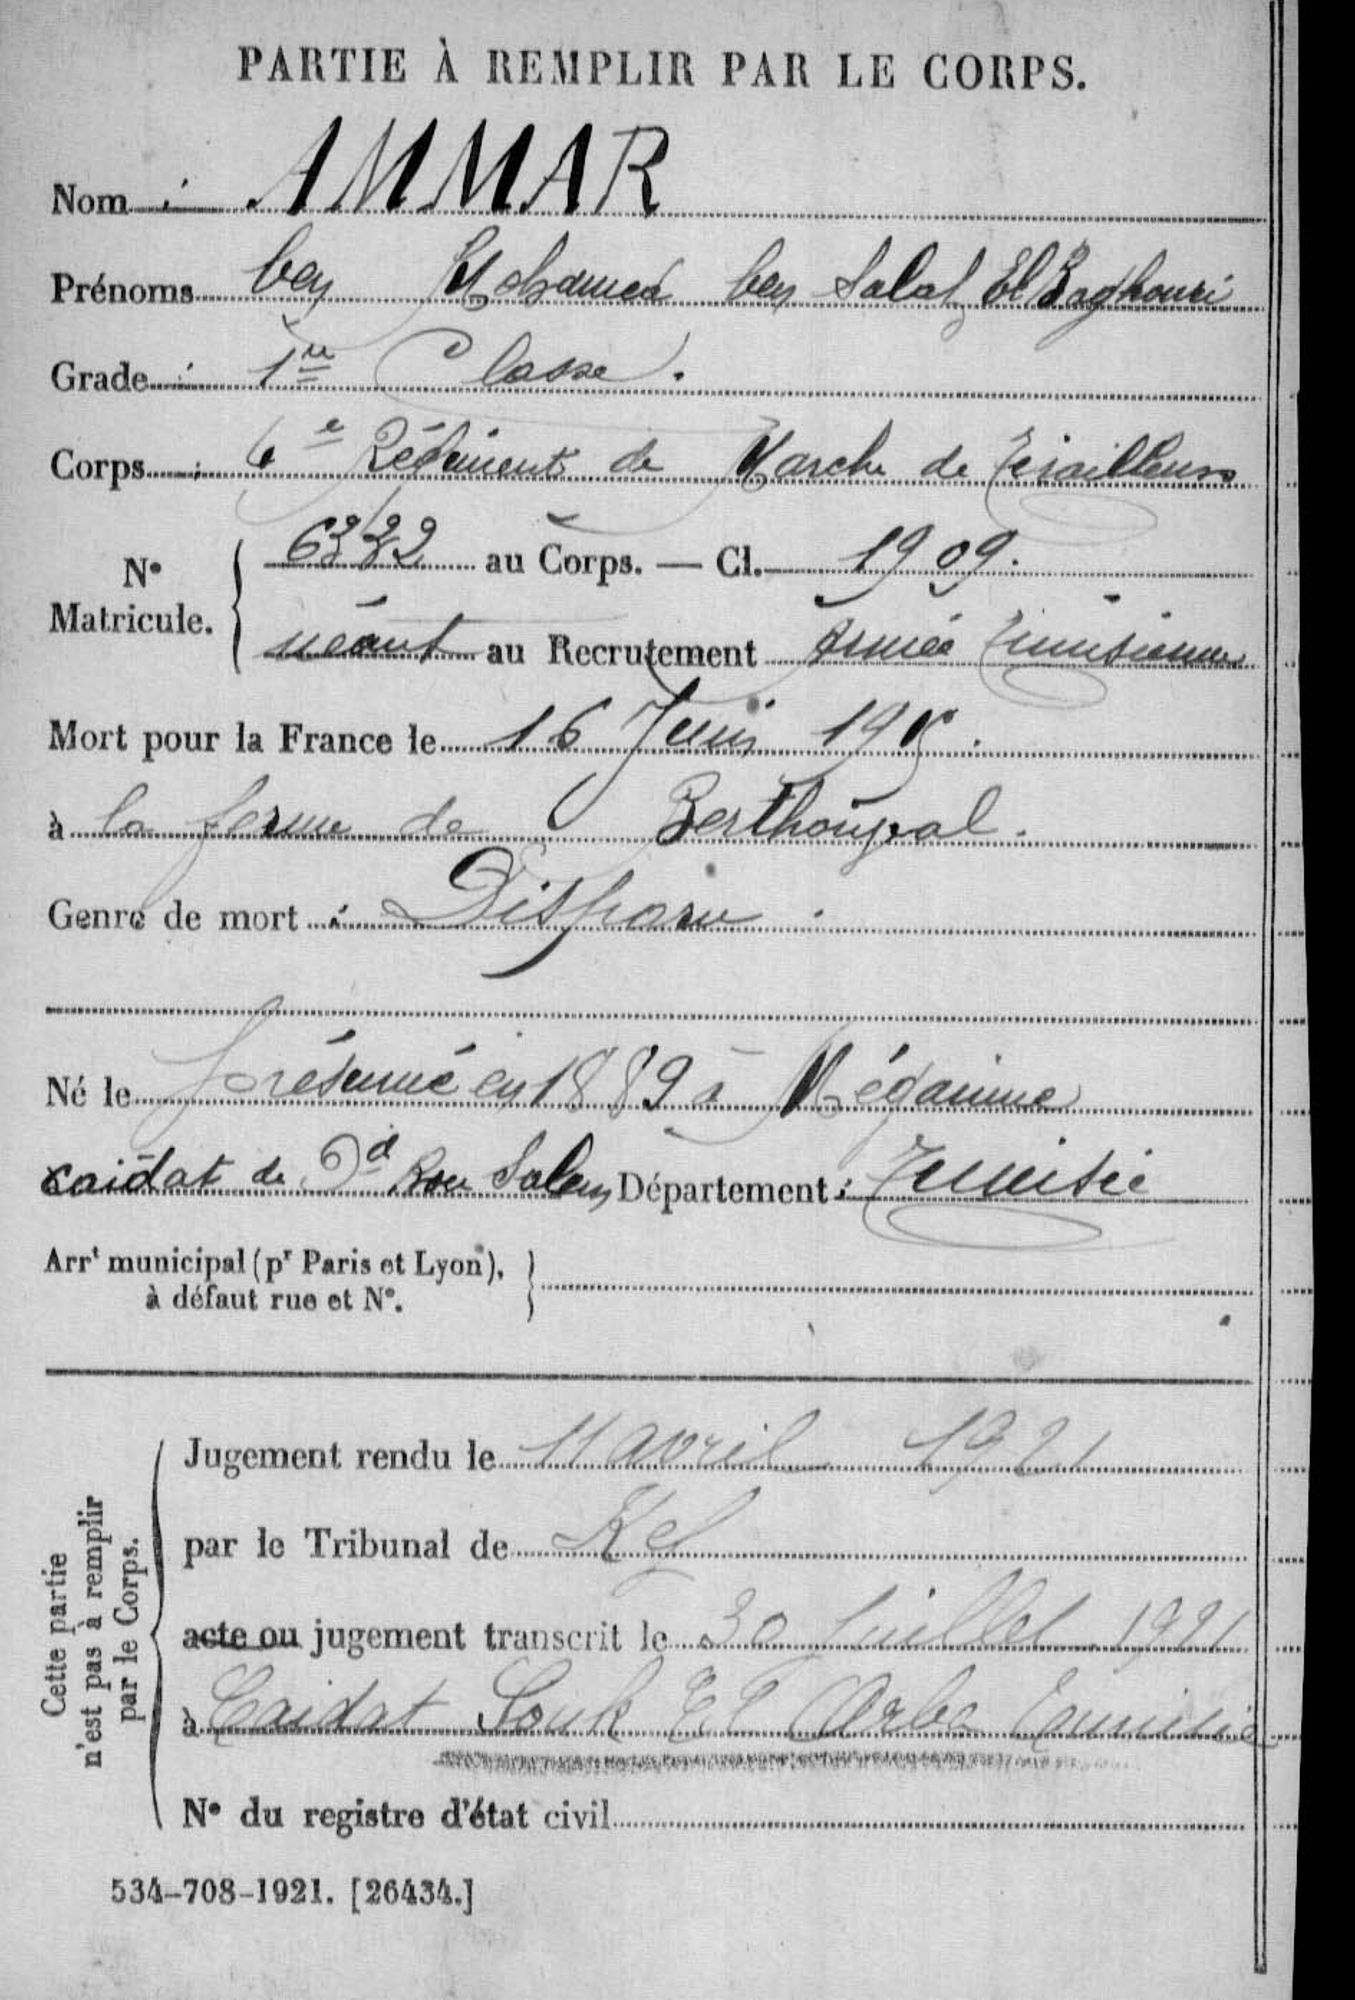 PARTIE À REMPLIR PAR LE CORPS.
Nom : AMMAR
Prénoms ben Mohamed ben Salah El
Grade : 1re Classe.
Corps : 6e Régiment de Marche de Tirailleurs
No Matricule. { 6332 au Corps. — Cl. 1909.
néant au Recrutement Armée Tunisienne
Mort pour la France le 16 Juin 1915.
à la ferme de Berthonval.
Genre de mort : Disparu.
Né le présumé en 1889 à
caïdat de Od Bou Salem Département : Tunisie
Arrt municipal (pr Paris et Lyon), }
à défaut rue et No.
Cette partie n'est pas à remplir par le Corps. {
Jugement rendu le 11 avril 1921
par le Tribunal de Kef
acte ou jugement transcrit le 30 Juillet 1921
à Caidat Souk El Arba Tunisie
No du registre d'état civil
534-708-1921. [26434.]